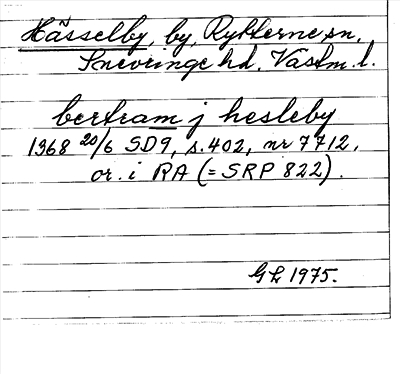 Hässelby, by, Rytterne sn,
Snevringe hd. Västm. l.
bertram j hesleby
1368 20/6 SD9, s. 402, nr 7712,
or. i RA (= SRP 822).
GL 1975.